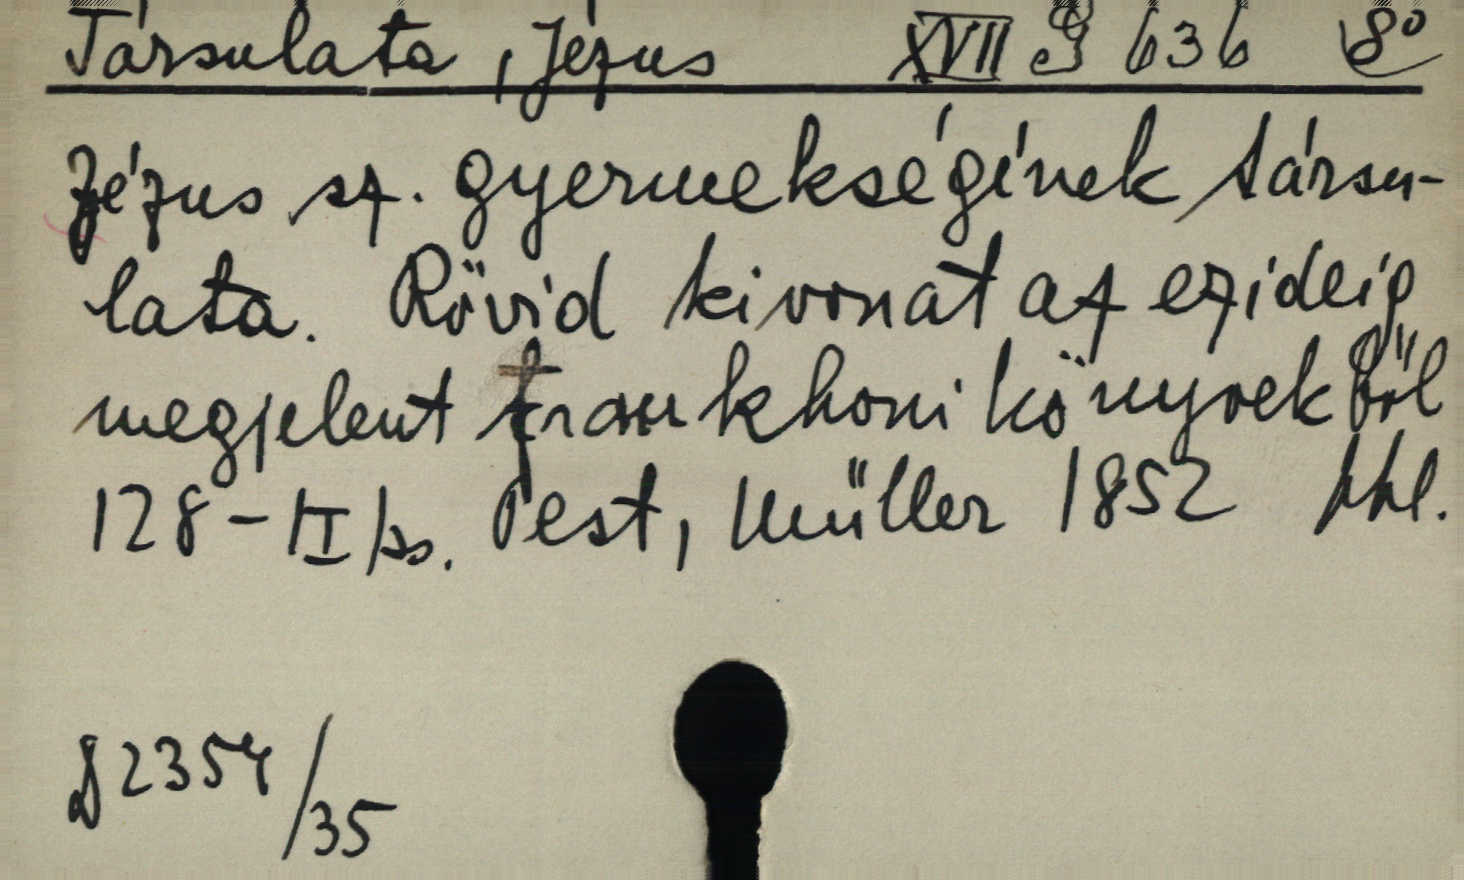 Társulata, Jézus XVII J 636 8°
Jézus sz. gyermekségének társu-
lata. Rövid kivonat az ezideig
megjelent frankhoni könyvekből
128-II/ss. Pest, Müller 1852
D 2354/35